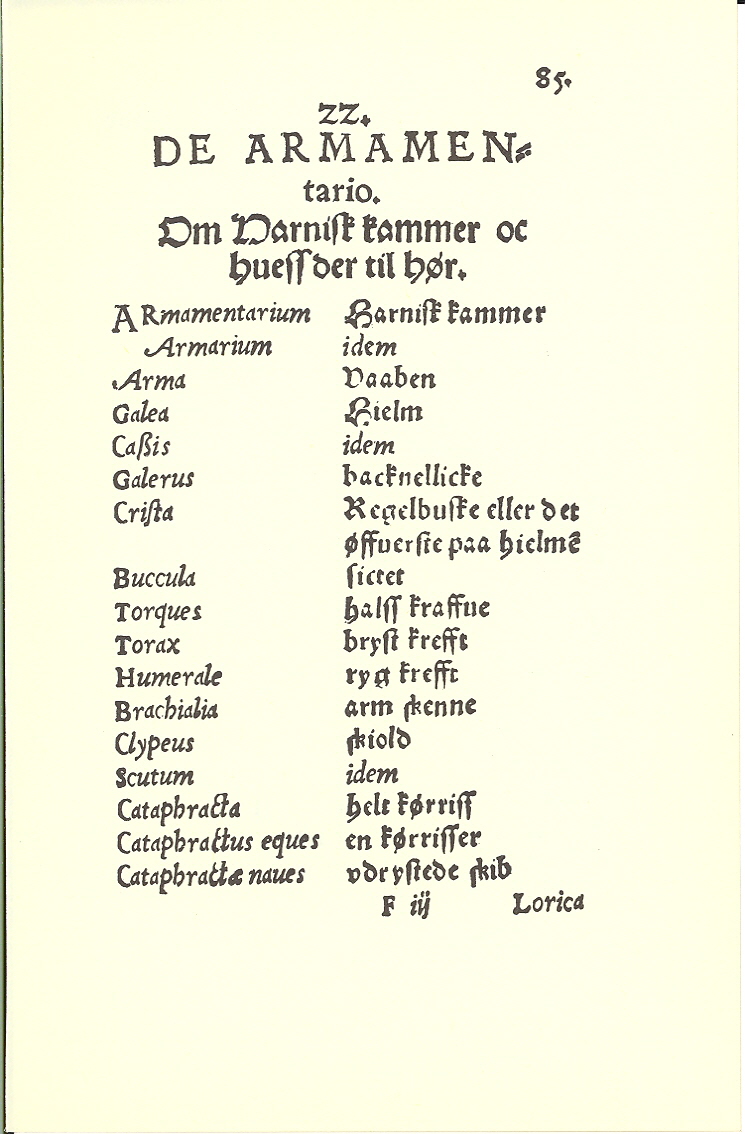 85.
22.
DE ARMAMEN⸗
tario.
Om Harniſk kammer oc
hueſſ der til hør.
ARmamentarium Harniſk kammer
Armarium idem
Arma Vaaben
Galea Hielm
Caßis idem
Galerus backnellicke
Criſta Kegelbuſke eller det
øffuerſte paa hielmē
Buccula ſictet
Torques halſſ kraffue
Torax bryſt krefft
Humerale ryg krefft
Brachialia arm ſkenne
Clypeus ſkiold
Scutum idem
Cataphracta helt kørriſſ
Cataphractus eques en kørriſſer
Cataphractæ naues vdryſtede ſkib
F iij Lorica